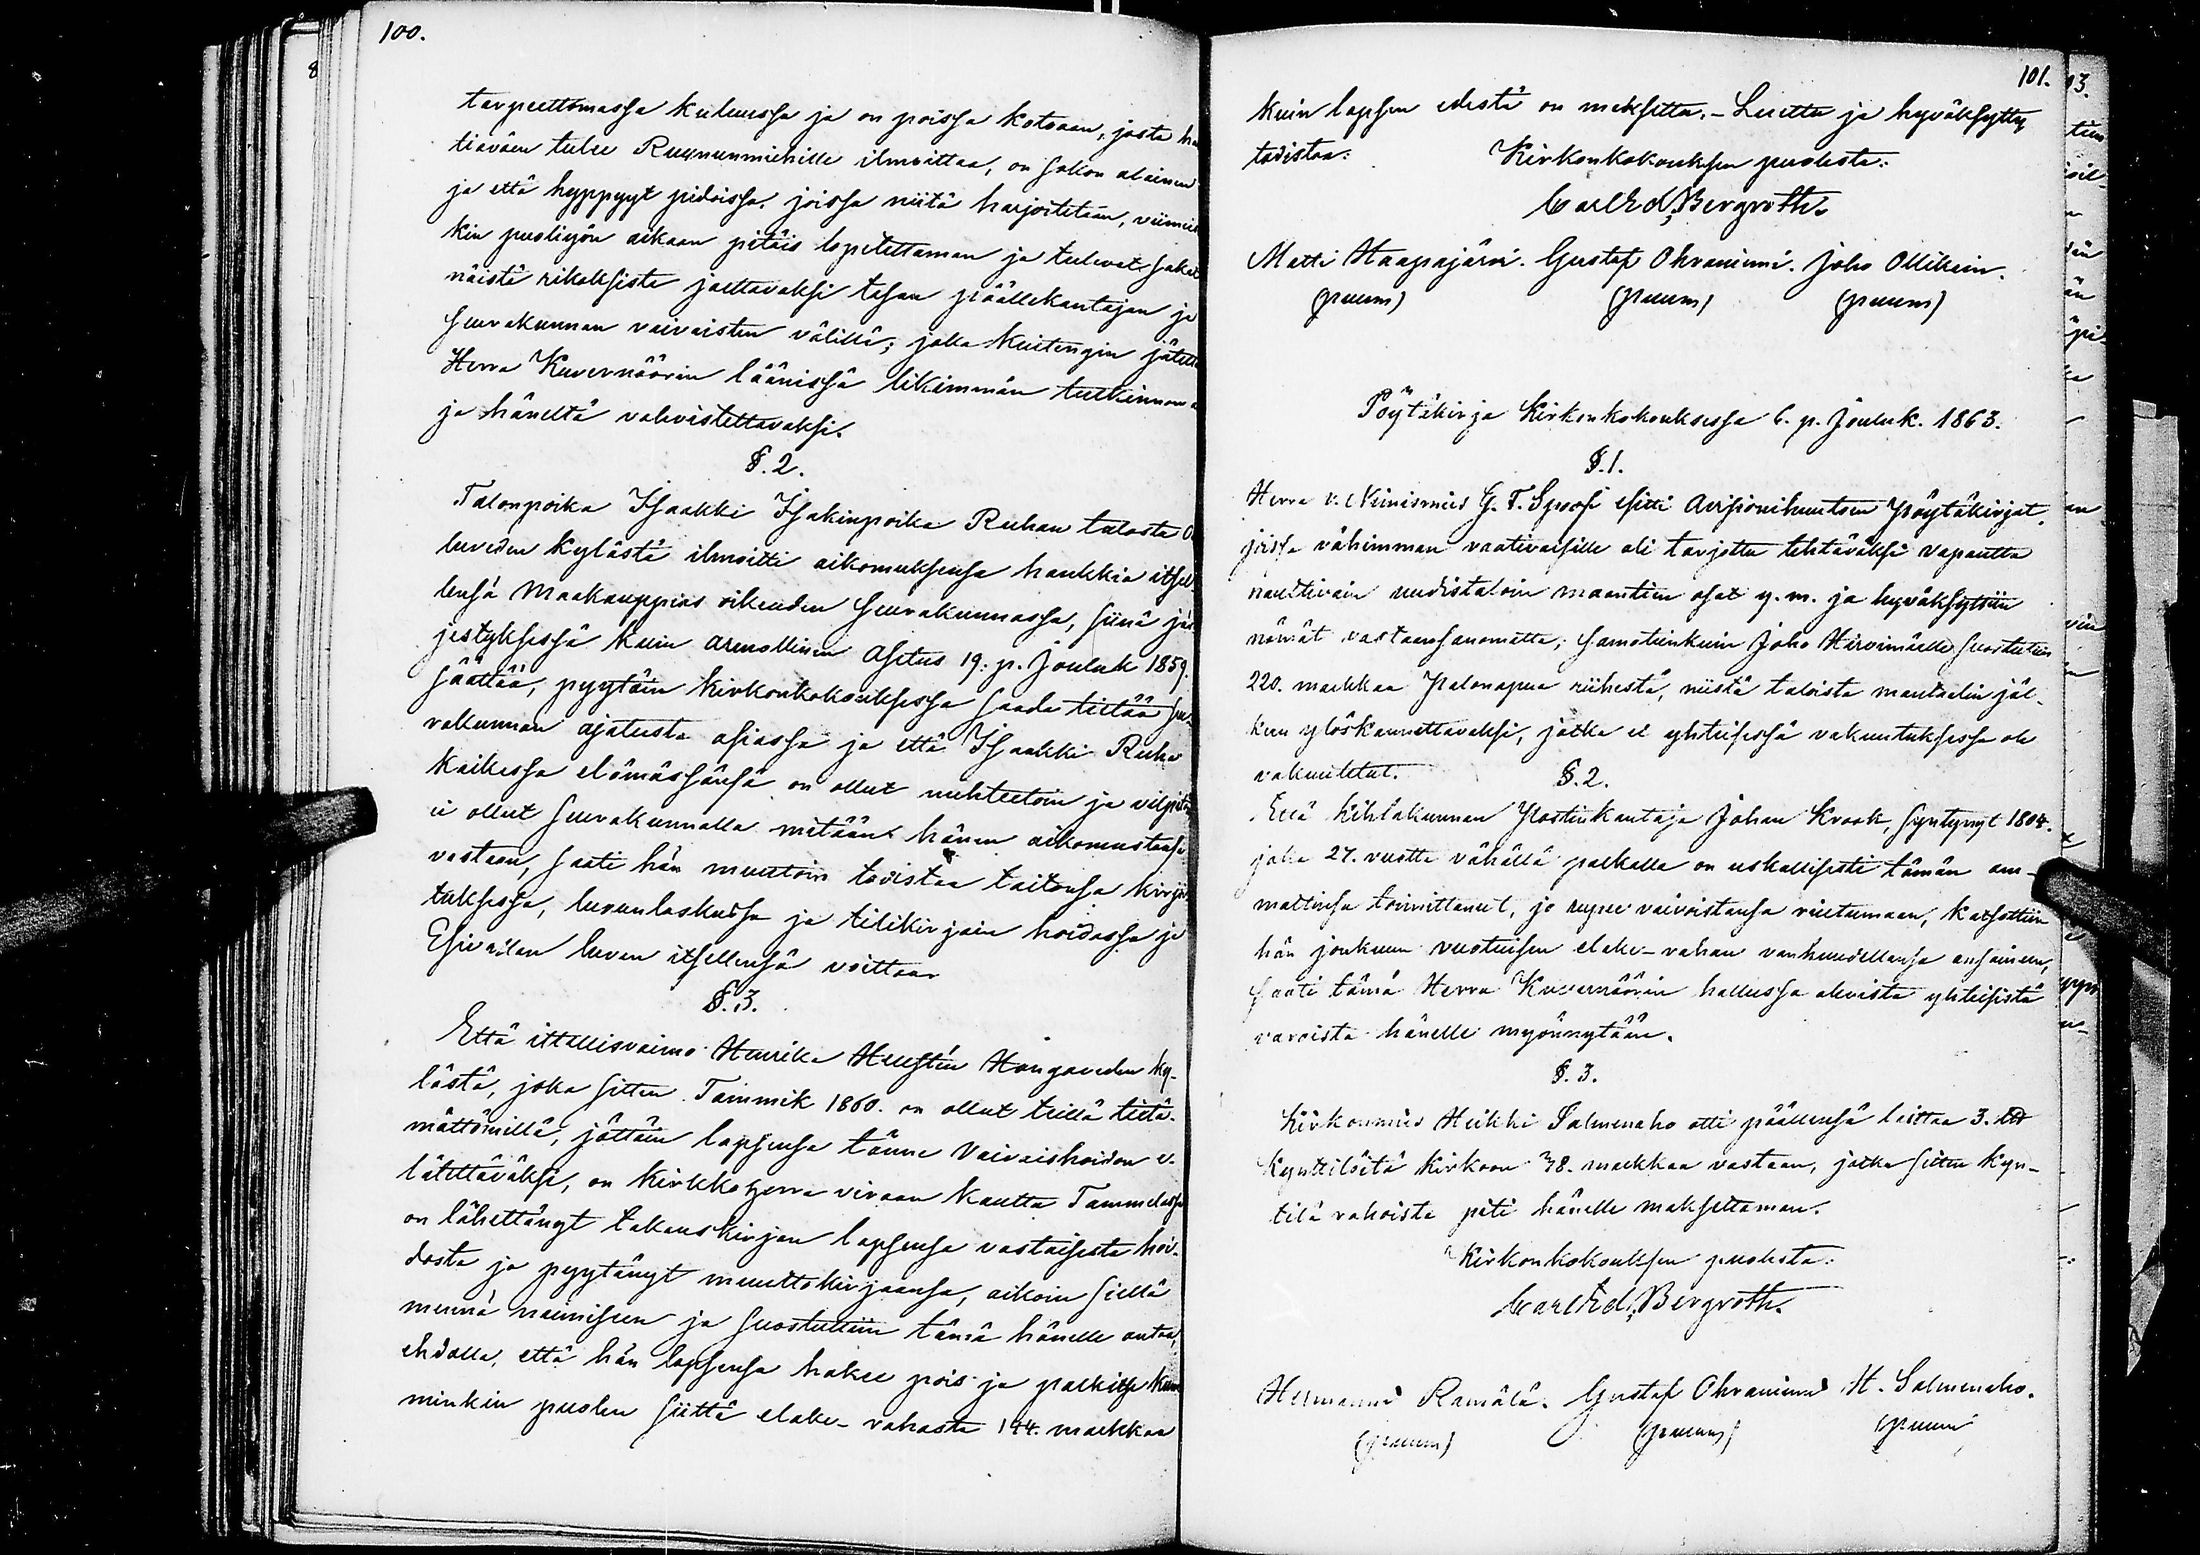 100.
tarpeettomassa kulussa ja on poissa kotoaan, josta
tiaväen tulee Ruununmiehille ilmoittaa, on sakon alainen
ja että hyppyyt pidoissa, joissa niitä harjoitetaan, viimeis
kin puoliyön aikaan pitäis lopetettaman ja tulevat sakot
näistä rikoksista jaettavaksi tasan päällekantajan ja
seurakunnan vaivaisten välillä; jolla kuitengin jätetti
Herra Kuvernöörin läänissä likimmän tutkinnon
ja häneltä vahvistettavaksi.
§. 2.
Talonpoika Isaakki Isakinpoika Ruhan talosta
luveden kylästä ilmoitti aikomuksensa hankkia itsel
lensä Maakauppias oikeuden seurakunnassa, siinä jär
jestyksessä kuin armollinen Asetus 19. p. Jouluk 1859.
säättää, pyytäin kirkonkokouksessa saada tietää seu
rakunnan ajatusta asiassa ja että Isaakki Ruha
kaikessa elämässänsä on ollut nuhteetoin ja vilpitön
ei ollut seurakunnalla mitään hänen aikomustansa
vastaan, saati hän muutoin todistaa taitonsa kirjoi
tuksessa, luvunlaskussa ja tilikirjain hoidossa ja
Esivallan luvan itsellensä voittaa.
§. 3.
Että itsellisvaimo Henrika Hensten Hongaveden ky-
lästä, joka sitten Tammik 1860. on ollut teillä tietä-
mättömillä, jättäin lapsensa tänne Vaivaishoidon e-
lätettäväksi, on Kirkkoherra viraan kautta Tammelassa
on lähettänyt takauskirjan lapsensa vastaisesta hoi-
dosta ja pyytänyt muuttokirjaansa, aikoin siellä
mennä naimiseen ja suostuttiin tämä hänelle antaa,
ehdolla, että hän lapsensa hakee pois ja palkitse kum
minkin puolen siittä elake-rahasta 144. markkaa
101.
kuin lapsen edestä on maksettu. - Luettu ja hyväksytty
todistaa:
Kirkonkokouksen puolesta:
Carl Ed. Bergroth.
Matti Haapajärvi. Gustaf Ohraniemi. Joho Ollikain.
(puum) (puum) (puum)
Pöytäkirja Kirkonkokouksessa 6. p. Jouluk. 1863.
§. 1.
Herra v. Nimismies G. F. Spoof esitti Auksionihuuton Pöytäkirjat,
joissa vähimman vaativaisille oli tarjottu tehtäväksi vapautta
nauttivain uudistaloin maantien osat y. m. ja hyväksyttiin
nämät vastaansanomatta; samatenkuin Joho Hirvimäelle suostuttiin
220. markkaa Palonapua riihestä, niistä taloista mantaalin jäl-
keen ylöskannettavaksi, jotka ei yhteisessä vakuutuksessa ole
vakuutetut.
§. 2.
Että Kihlakunnan Postinkantaja Johan Krook, syntynyt 1804.
joka 27. vuotta vähällä palkalla on uskollisesti tämän am-
mattinsa toimittanut, jo rupee vaivoistansa riutumaan, katsottiin
hän jonkuun vuotuisen elake-rahan vanhuudellansa ansaineen,
saati tämä Herra Kuvernöörin hallussa olevista yhteisistä
varoista hänelle myönnytään.
§. 3.
Kirkonmies Heikki Salmenaho otti päällensä laittaa 3. ltt
kynttilöitä Kirkoon 38. markkaa vastaan, jotka sitten kyn-
tilä rahoista piti hänelle maksettaman.
Kirkonkokouksen puolesta:
Carl Ed. Bergroth.
Hermanni Ramälä. Gustaf Ohraniemi H. Salmenaho.
(puum) (puum) (puum)